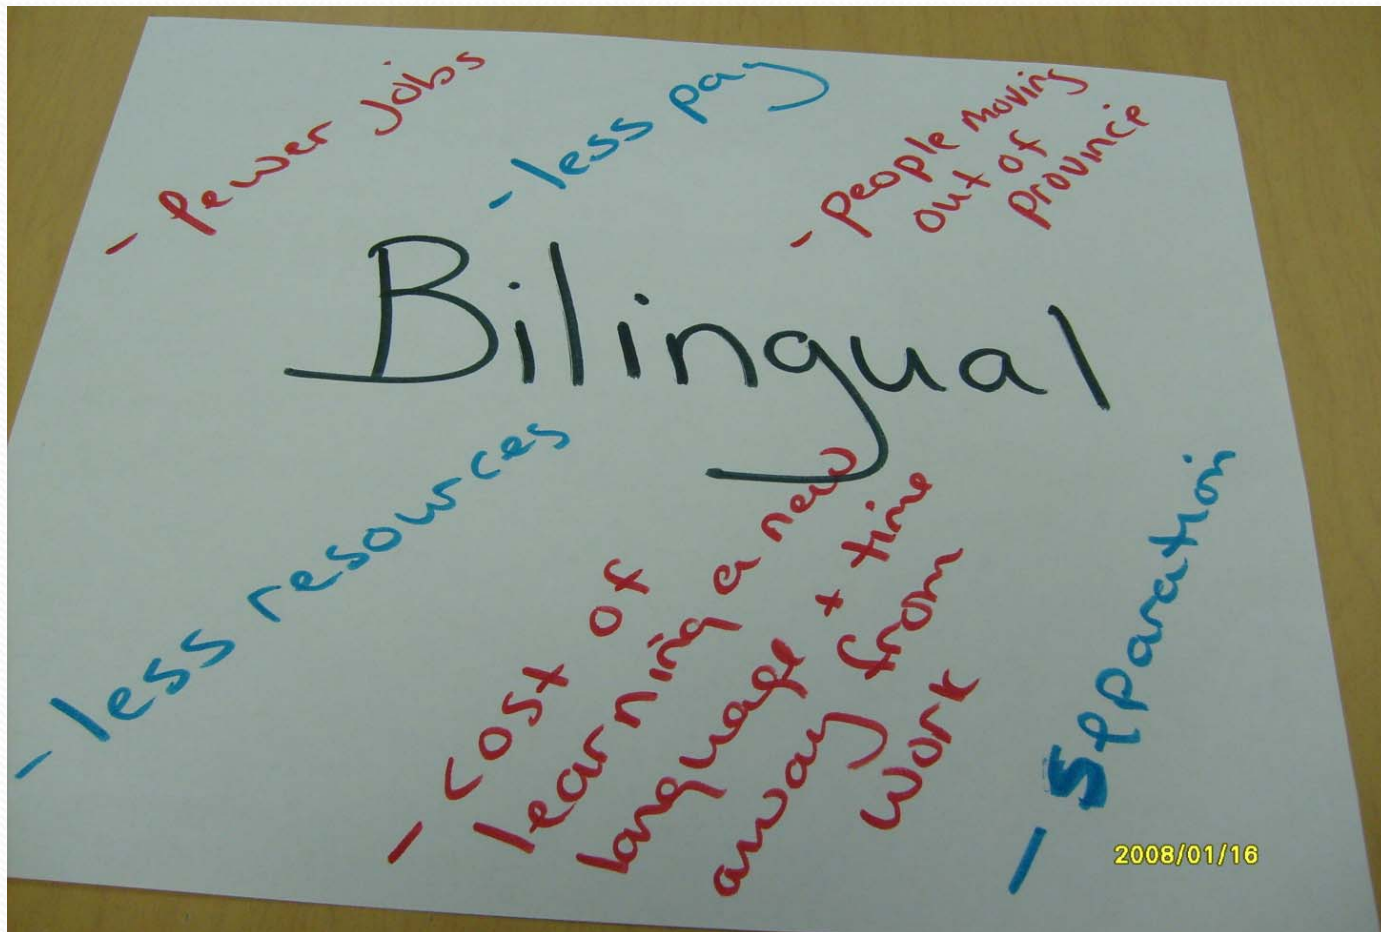 - fewer Jobs
- less pay
- People moving
out of
province
Bilingual
- less resources
- cost of
learning a new
language + time
away from
work
- Separation
2008/01/16